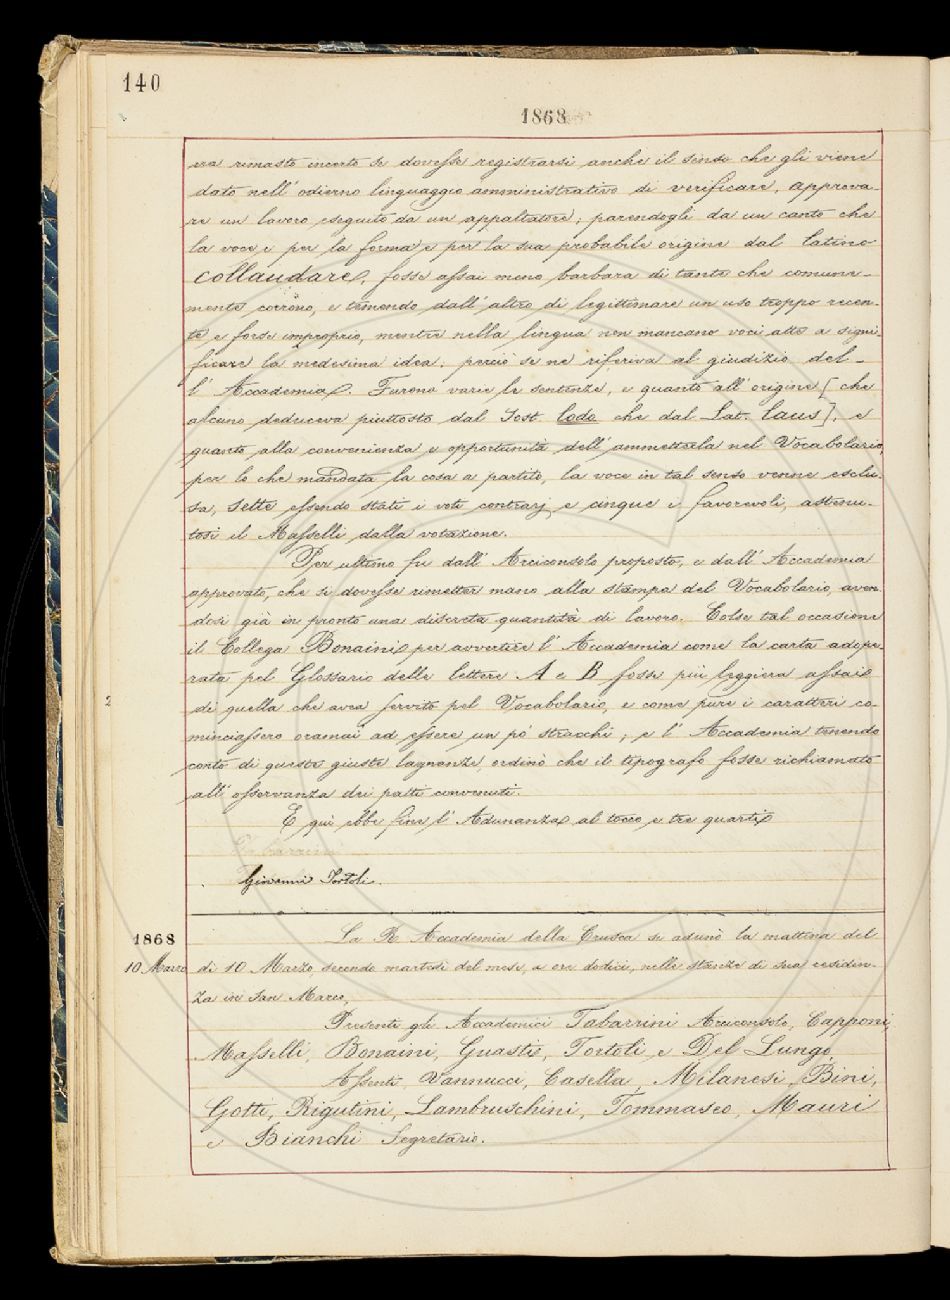 140
1868
era rimasto incerto se dovesse registrarsi anche il senso che gli viene
dato nell' odierno linguaggio amministrativo di verificare, approva-
re un lavoro eseguito da un appaltatore; parendogli da un canto che
la voce e per la forma e per la sua probabile origine dal latino
collaudare, fosse assai meno barbara di tante che comune-
mente corrono, e temendo dall' altro di legittimare un uso troppo recen-
te e forse improprio, mentre nella lingua non mancano voci atte a signi-
ficare la medesima idea: perciò se ne riferiva al giudizio del-
l' Accademia. Furono varie le sentenze, e quanto all' origine [che
alcuno deduceva piuttosto dal Sost. lodo che dal Lat. laus], e
quanto alla convenienza e opportunità dell' ammetterla nel Vocabolario,
per lo che mandata la cosa a partito, la voce in tal senso venne esclu-
sa, sette essendo stati i voti contrarj, e cinque i favorevoli, astenu-
tosi il Masselli dalla votazione.
Per ultimo fu dall' Arciconsolo proposto, e dall' Accademia
approvato, che si dovesse rimetter mano alla stampa del Vocabolario, aven-
dosi già in pronto una discreta quantità di lavoro. Colse tal occasione
il Collega Bonaini per avvertire l' Accademia come la carta adope-
rata pel Glossario delle lettere A e B fosse più leggiera assai
di quella che avea servito pel Vocabolario, e come pure i caratteri co-
minciassero oramai ad essere un po' stracchi; e l' Accademia tenendo
conto di queste giuste lagnanze, ordinò che il tipografo fosse richiamato
all' osservanza dei patti convenuti.
E qui ebbe fine l' Adunanza al tocco e tre quarti
Giovanni Tortoli.
1868
10 Marzo
La R. Accademia della Crusca si adunò la mattina del
dì 10 Marzo, secondo martedì del mese, a ore dodici, nelle stanze di sua residen-
za in San Marco,
Presenti gli Accademici Tabarrini Arciconsolo, Capponi,
Masselli, Bonaini, Guasti, Tortoli, e Del Lungo,
Assenti, Vannucci, Casella, Milanesi, Bini,
Gotti, Rigutini, Lambruschini, Tommaseo, Mauri
e Bianchi Segretario.